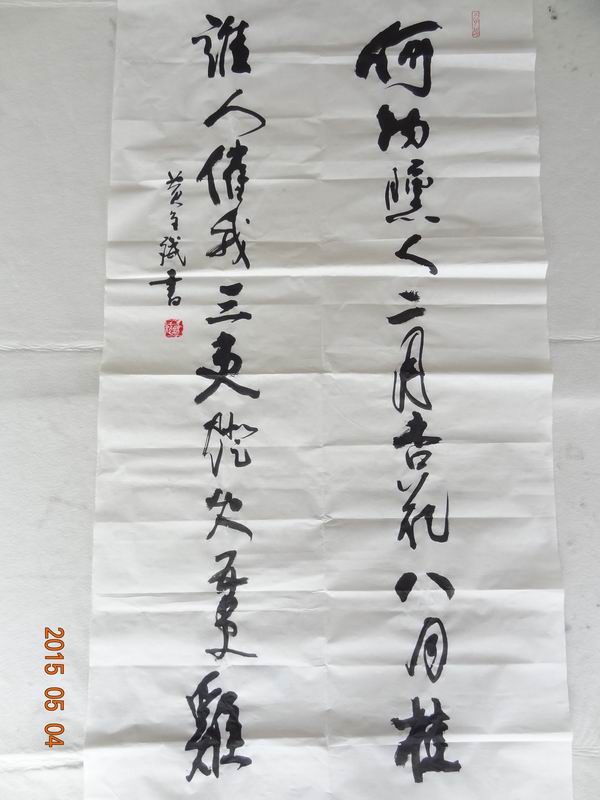 何物動人二月杏花八月桂
誰人催我三更燈火五更雞
黄
書
2015 05 04